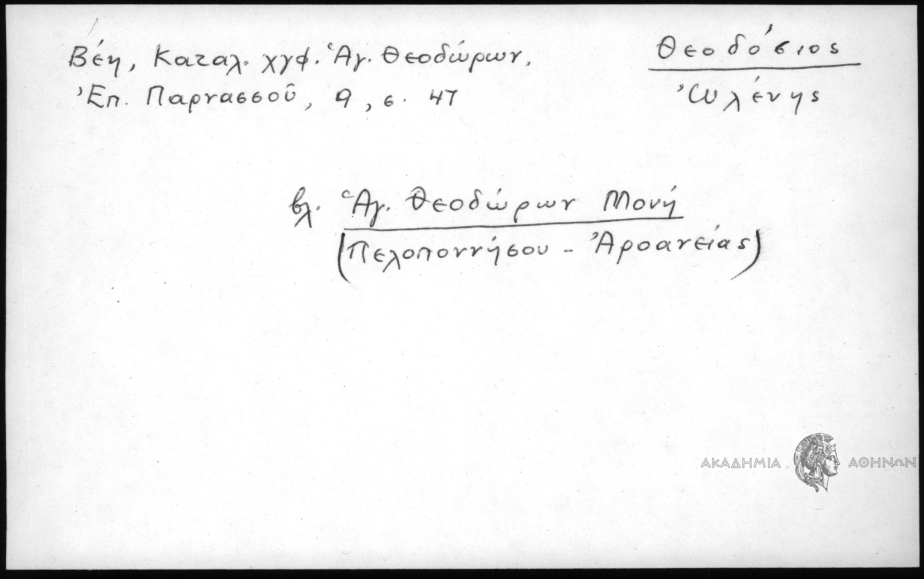 Βέη, Καταλ. χγφ. Ἁγ. Θεοδώρων,
Ἐπ. Παρνασσοῦ, 9, σ. 47
Θεοδόσιος
Ὠλένης
βλ. Ἁγ. Θεοδώρων Μονή
(Πελοποννήσου - Ἀροανείας)
ΑΚΑΔΗΜΙΑ ΑΘΗΝΩΝ